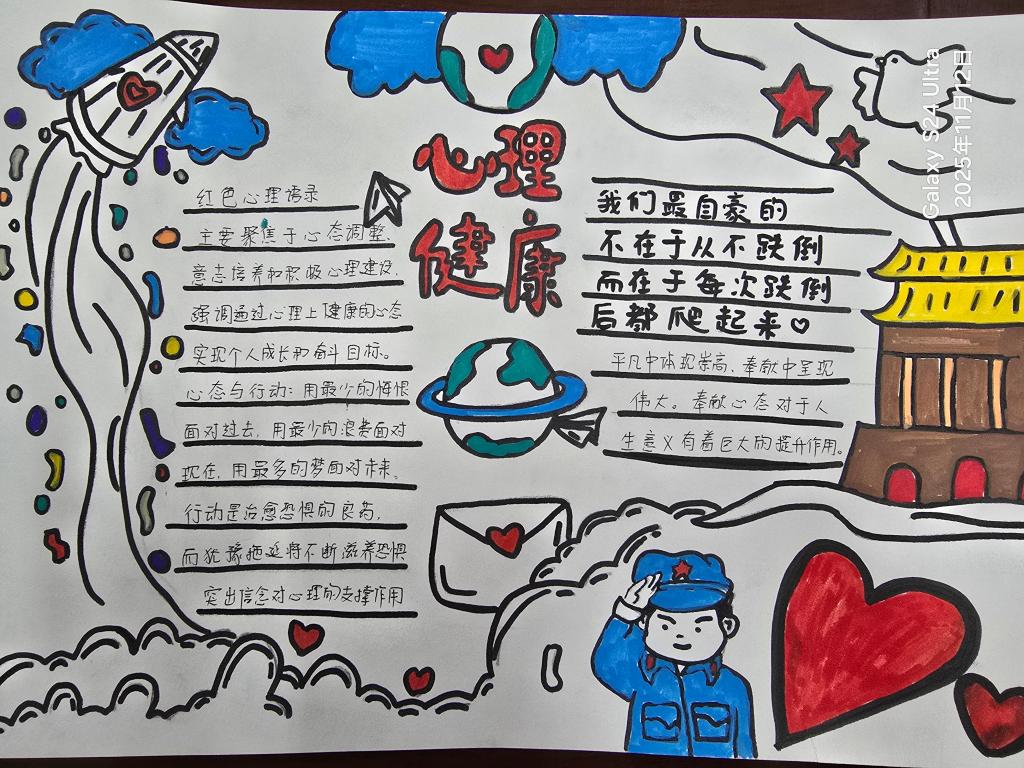 心理
健康
红色心理语录
主要聚焦于心态调整、
意志培养和积极心理建设,
强调通过心理上健康的心态
实现个人成长和奋斗目标。
心态与行动:用最少的悔恨
面对过去,用最少的浪费面对
现在,用最多的梦面对未来。
行动是治愈恐惧的良药,
而犹豫拖延将不断滋养恐惧
突出信念对心理的支撑作用
我们最自豪的
不在于从不跌倒
而在于每次跌倒
后都爬起来
平凡中体现崇高、奉献中呈现
伟大。奉献心态对于人
生意义有着巨大的提升作用。
Galaxy S24 Ultra
2025年11月12日